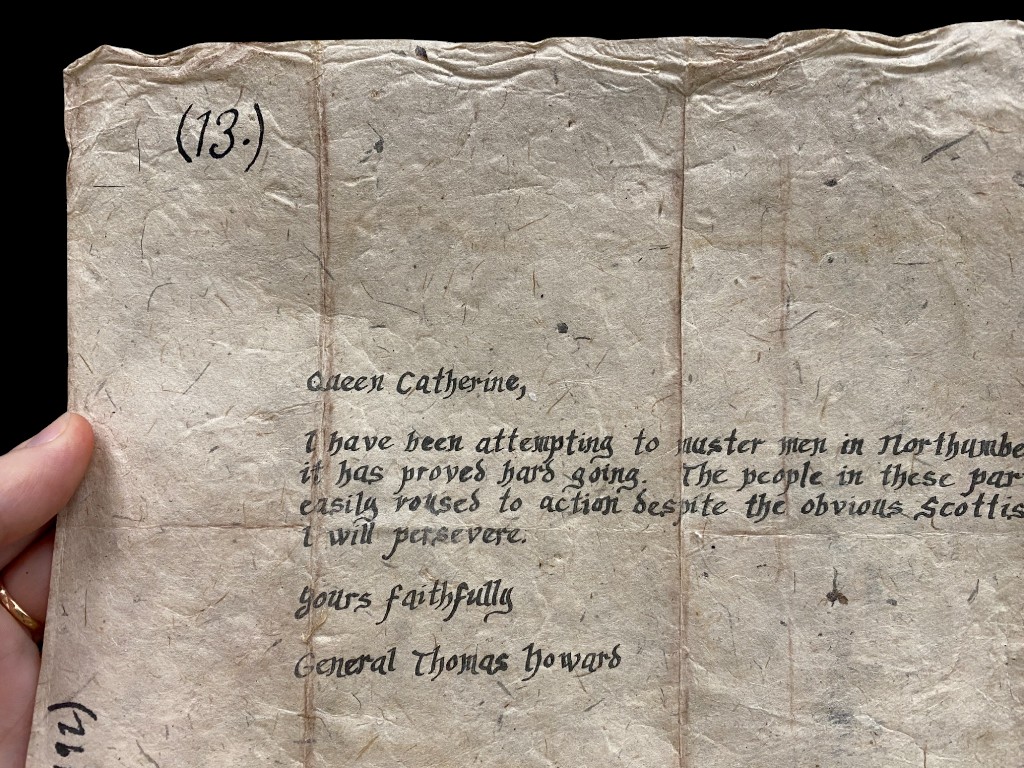 (13.)
Queen Catherine,
I have been attempting to muster men in Northumbe
it has proved hard going. The people in these par
easily roused to action despite the obvious Scottis
I will persevere.
Yours faithfully
General Thomas Howard
92)